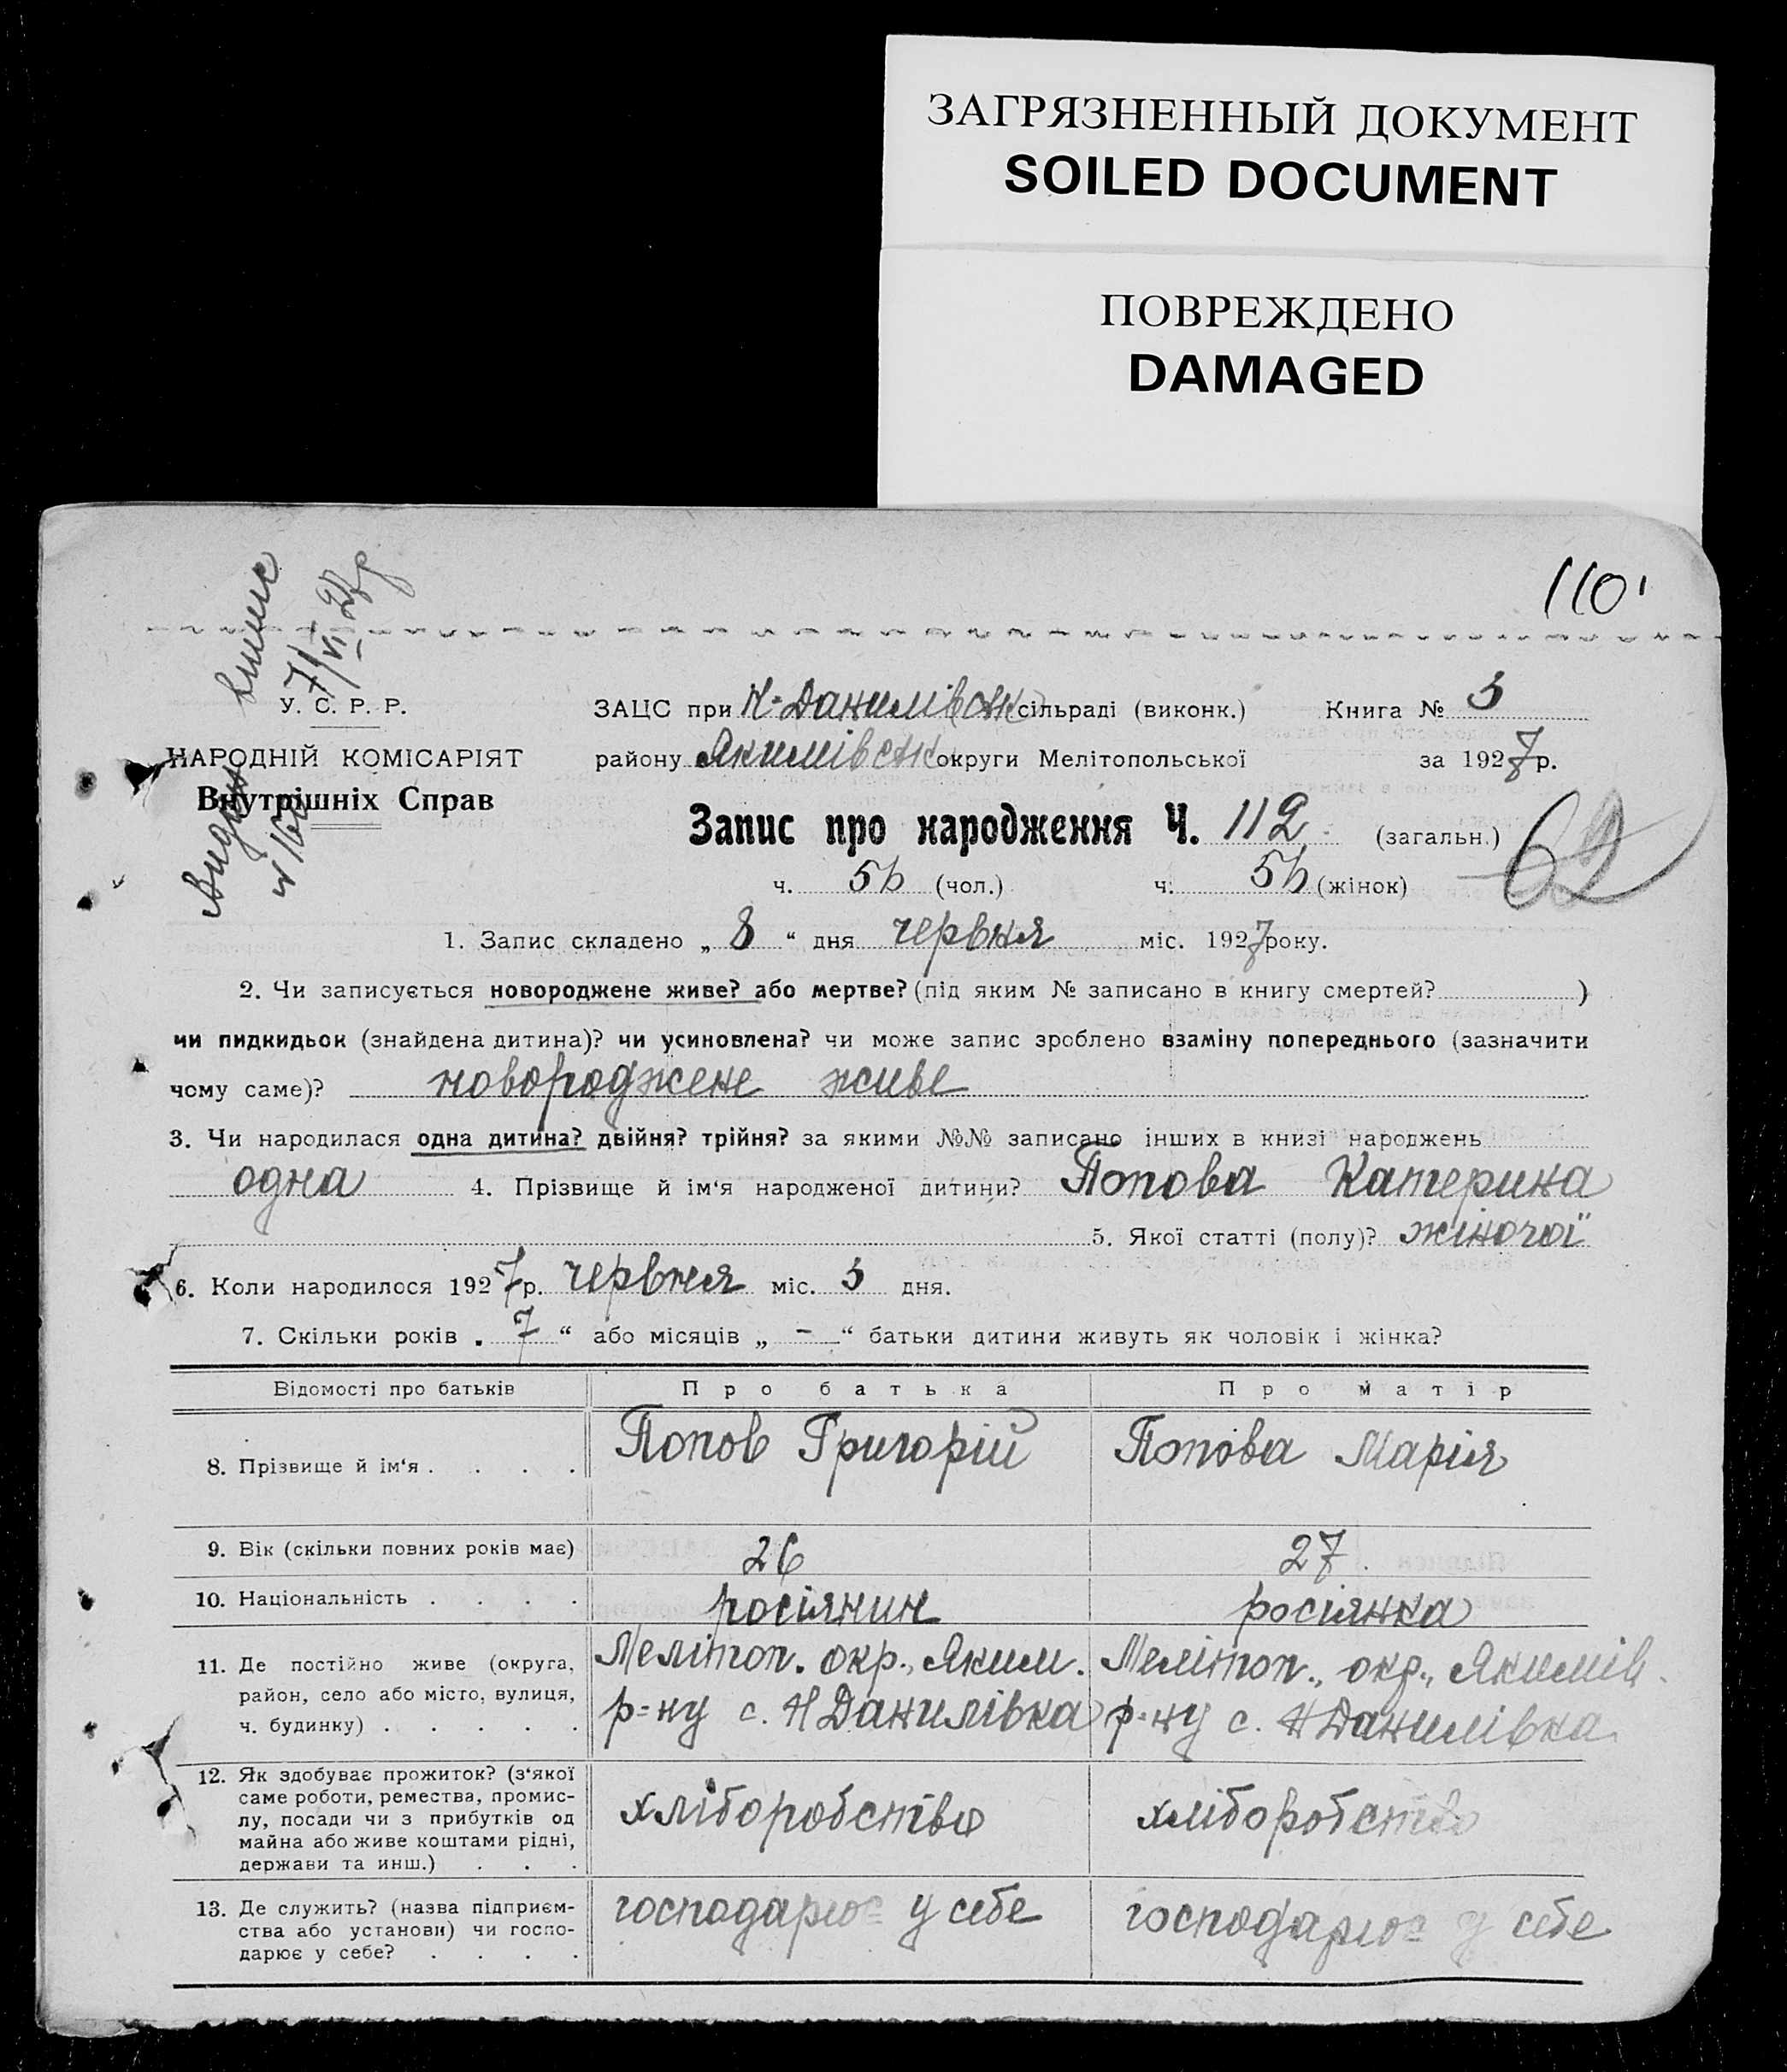 ЗАГРЯЗНЕННЫЙ ДОКУМЕНТ
SOILED DOCUMENT
ПОВРЕЖДЕНО
DAMAGED
110
випис
7/VI 27р
У. С. Р. Р.
НАРОДНІЙ КОМІСАРІЯТ
Внутрішніх Справ
Видан
ЗАЦС при Н-Данилівськ сільраді (виконк.) Книга № 3
району Якимівськ округи Мелітопольської за 1927 р.
Запис про народження Ч. 112 (загальн.)
62
ч. 56 (чол.) ч. 56 (жінок)
1. Запис складено „ 8 “ дня червня міс. 1927 року.
2. Чи записується новороджене живе? або мертве? (під яким № записано в книгу смертей? )
чи пидкидьок (знайдена дитина)? чи усиновлена? чи може запис зроблено взаміну попереднього (зазначити
чому саме)? новороджене живе
3. Чи народилася одна дитина? двійня? трійня? за якими №№ записано інших в книзі народжень
одна 4. Прізвище й ім‘я народженої дитини? Попова Катерина
5. Якої статті (полу)? жіночої
6. Коли народилося 1927 р. червня міс. 3 дня.
7. Скільки років „ 7 “ або місяців „ – “ батьки дитини живуть як чоловік і жінка?
Відомості про батьків Про батька Про матір
8. Прізвище й ім‘я . . . . Попов Григорій Попова Марія
9. Вік (скільки повних років має) 26 27
10. Національність . . . . росіянин росіянка
11. Де постійно живе (округа,
район, село або місто, вулиця,
ч. будинку) . . . . .
Мелітоп. окр., Яким.
р-ну с. Н Данилівка
Мелітоп., окр., Якимів.
р-ну с. Н Данилівка
12. Як здобуває прожиток? (з‘якої
саме роботи, ремества, промис-
лу, посади чи з прибутків од
майна або живе коштами рідні,
держави та инш.) . . .
хліборобство
хліборобство
13. Де служить? (назва підприєм-
ства або установи) чи госпо-
дарює у себе? . . . .
господарює у себе
господарює у себе